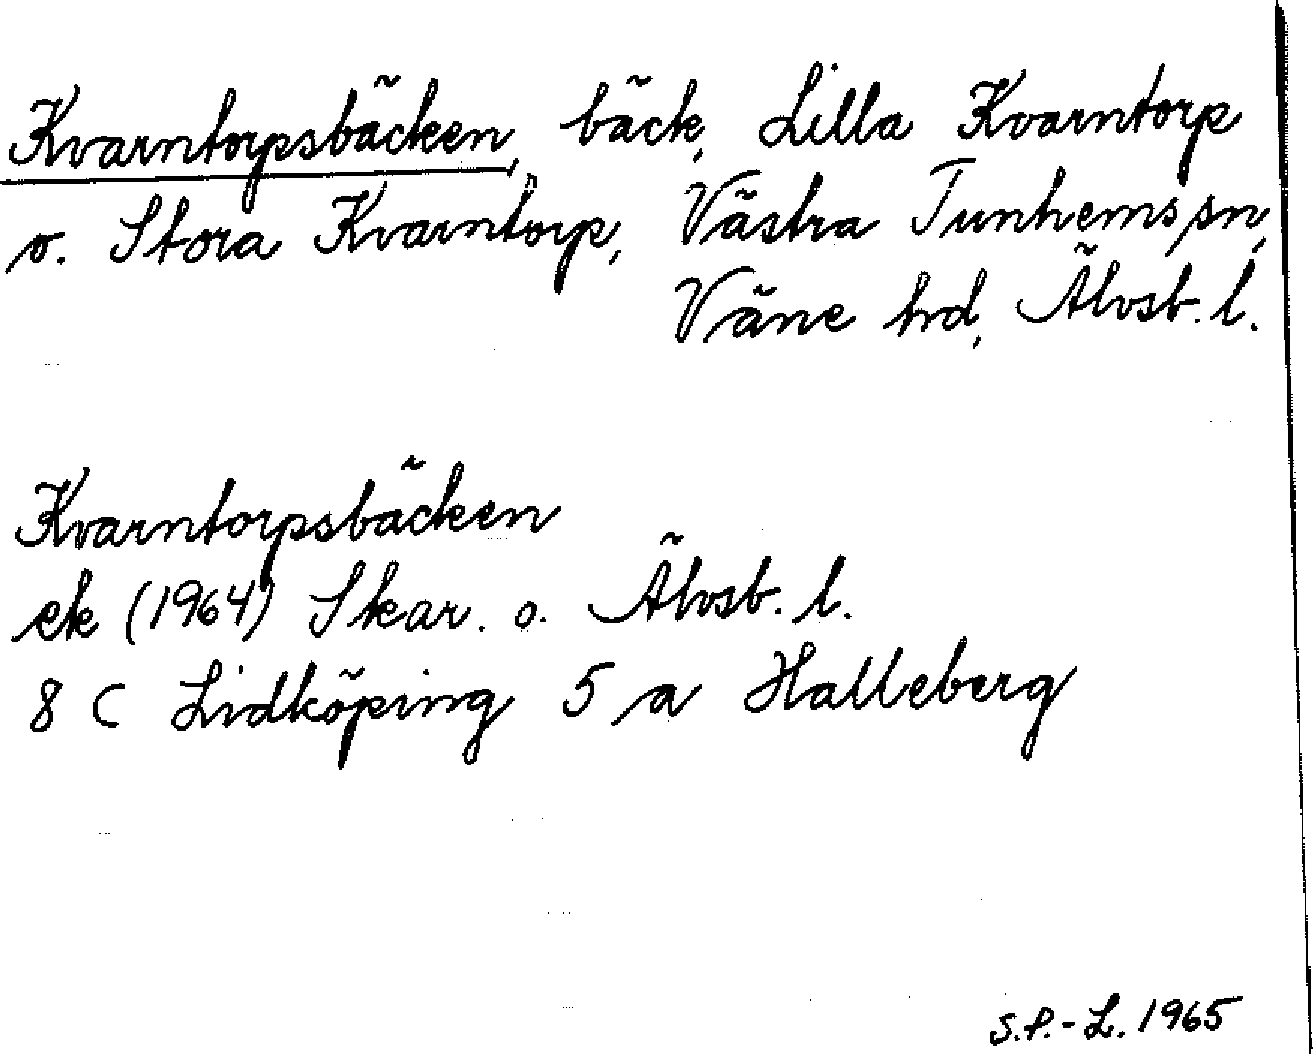 Kvarntorpsbäcken, bäck, Lilla Kvarntorp
o. Stora Kvarntorp, Västra Tunhems sn,
Väne hrd, Älvsb. l.
Kvarntorpsbäcken
ek (1964) Skar. o. Älvsb. l.
8 C Lidköping 5 a Halleberg
S.P.-L. 1965